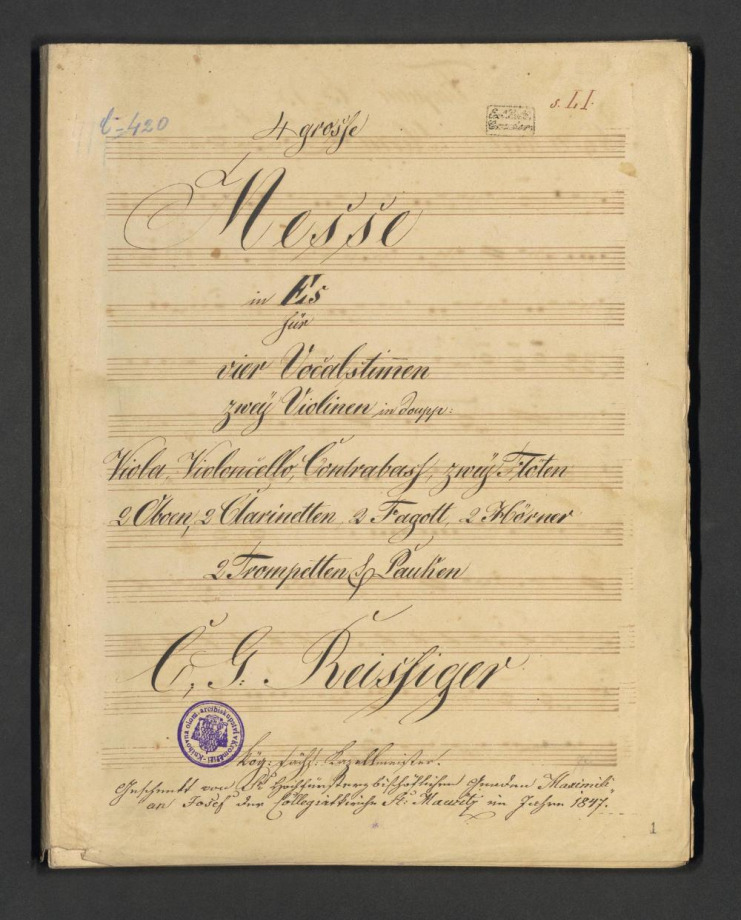 C-420
s. LI.
4 grosse
Messe
in Es
für
vier Vocalstim̅en
zweÿ Violinen in doupp:
Viola, Violoncello, Contrabass, zweÿ Flöten
2 Oboen, 2 Clarinetten, 2 Fagott, 2 Hörner
2 Trompetten & Pauken
C. G. Reissiger
Kög: sächs: Kapellmeister.
Geschenkt von Sr Hochfürsterzbischöflichen Gnaden Maximili-
an Josef der Collegiatkirche St: Mauritz im Jahre 1847.
Knihovna olom. arcibiskupství v Kroměříži
1